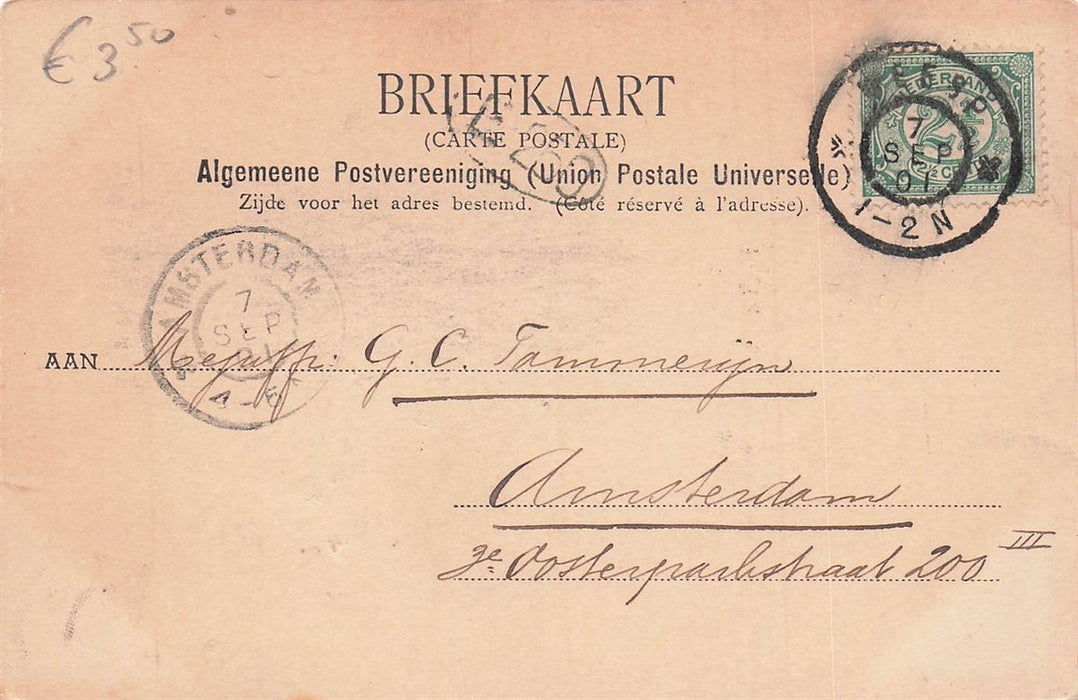 € 3.50
BRIEFKAART
(CARTE POSTALE)
Algemeene Postvereeniging (Union Postale Universelle)
Zijde voor het adres bestemd. (Côté réservé à l'adresse).
NEDERLAND
2½
7
SEP
01
1-2N
AMSTERDAM
7
SEP
01
4-5
AAN Mejuffr: G. C. Tammerijn
Amsterdam
3e Oosterparkstraat 200 III